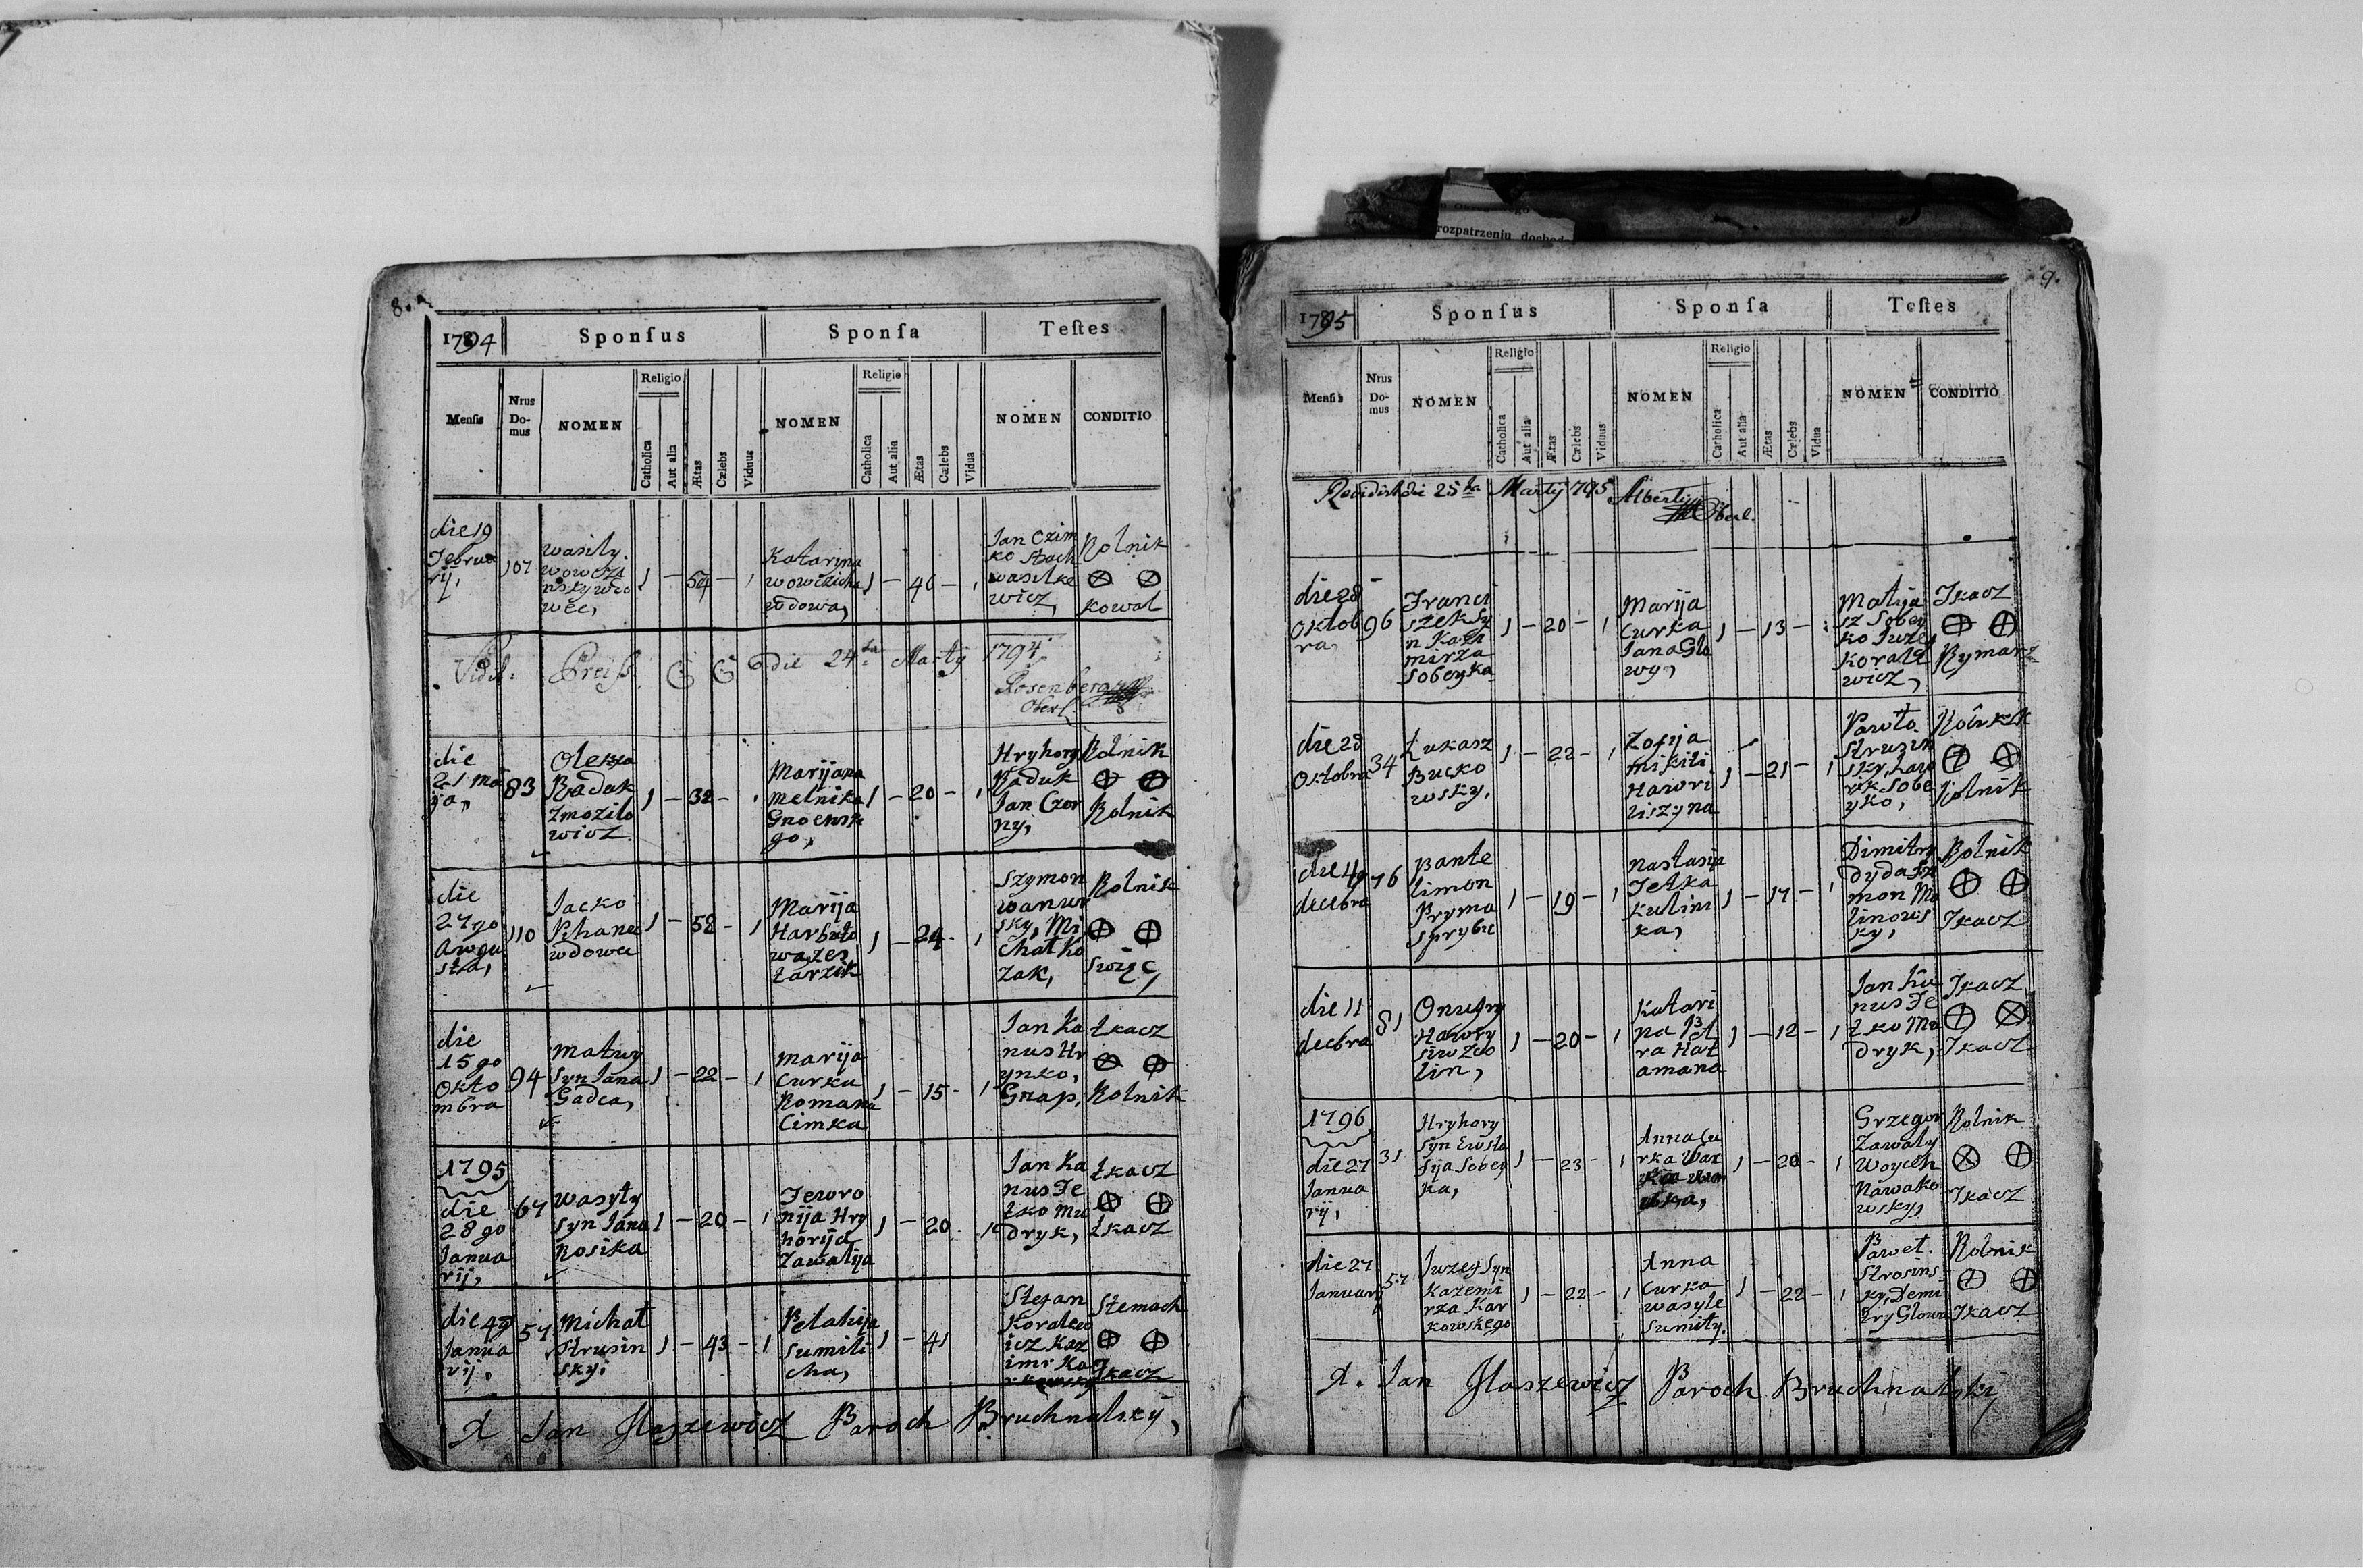 rozpatrzeniu
8.
1794
Sponſus
Sponſa
Teſtes
Menſis
Nrus Do-mus
NOMEN
Religio
Catholica
Aut alia
Ætas
Cælebs
Viduus
NOMEN
Religio
Catholica
Aut alia
Ætas
Cælebs
Vidua
NOMEN
CONDITIO
die 19
Februa
rij,
107
wasily
wdo
wec,
1 – 54 – 1
Katarina
wowczicha
wdowa,
1 – 40 – 1
Jan Czim
ko Stach
wasilke
wicz,
Rolnik
kowal
Vidit. Preiss die 24ta Martij 1794
Rosenberg
Oberl
die
21 ma
ja,
83
Olexa
Raduk
Zmozilo
wicz.
1 – 32 – 1
Marijana
melnika
go,
1 – 20 – 1
Hryhory
Raduk
Jan Czor
ny,
Rolnik
Rolnik
die
27go
Awgu
sta,
110
Jacko
wdowec
1 – 58 – 1
Marija
1 – 24 – 1
Szymon
sky, Mi
chał Ko
zak,
Rolnik
die
15go
Okto
mbra
94
matwy
syn Jana
Gadca,
1 – 22 – 1
marija
curka
Romana
Cimka
1 – 15 – 1
Jan Ka
nus Hr
ynko,
Gnap,
tkacz
Rolnik
1795
die
28go
Janua
rij,
67
wasyly
syn Jana
Kosika
1 – 20 – 1
Fewro
nija Hry
horija
Zawalija
1 – 20 – 1
Jan Ka
nus Fe
tko Mu
dryk,
tkacz
tkacz
die 4g
Janua
rij,
57
Michał
Strusin
sky,
1 – 43 – 1
Pelahija
sumili
cha,
1 – 41
Stefan
Koralew
icz Kaz
imir Ka
rkowsky
Stemach
tkacz
X Jan Ilaszewicz Paroch Bruchnalsky,
9.
1795
Sponſus
Sponſa
Teſtes
Menſis
Nrus Do-mus
NOMEN
Religio
Catholica
Aut alia
Ætas
Cælebs
Viduus
NOMEN
Religio
Catholica
Aut alia
Ætas
Cælebs
Vidua
NOMEN
CONDITIO
die 25ta Martij 795 Alberti
Oberl.
die 28
oktob
ra,
96
Franci
szek sy
n Kazi
mirza
Sobeyka
1 – 20 – 1
Marija
curka
Jana Glo
wy,
1 – 13 –
Matija
sz Sobey
ko Juzef
Korale
wicz,
Tkacz
Rymarz
die 28
Oktobra
34
Łukasz
Bucko
wsky,
1 – 22 – 1
Zofija
mikiti
Hawri
liszyna
1 – 21 – 1
Pawło
Strusin
sky, Law
rik Sobe
yko,
Rolnik
Rolnik
die 4g
decebra
76
Pante
limon
Pryma
1 – 19 – 1
Nastasija
Fetka
kulini
ka,
1 – 17 – 1
Dimitry
Dyda Sy
mon Ma
linows
ky,
Rolnik
Tkacz
die 11
decbra
81
Onufry
1 – 20 – 1
Katari
na Pet
ra Hat
amana
1 – 12 – 1
Jan Ka
nus Fe
tko Mu
dryk,
Tkacz
Tkacz
1796
die 27
Janua
rij,
31
Hryhory
syn Ewsta
fija Sobey
ka,
1 – 23 – 1
Anna Cu
rka
1 – 20 – 1
Grzegor
Zawaly
Woyceh
Nawako
wsky,
Rolnik
Tkacz
die 27
Januarij
57
Juzef Syn
Kazemi
rza Kar
kowskego
1 – 22 – 1
Anna
curka
wasyle
Sumiły.
1 – 22 – 1
Paweł.
Strosins
ky, Demi
try Glowa
Rolnik
Tkacz
X. Jan Ilaszewicz Paroch Bruchnalski